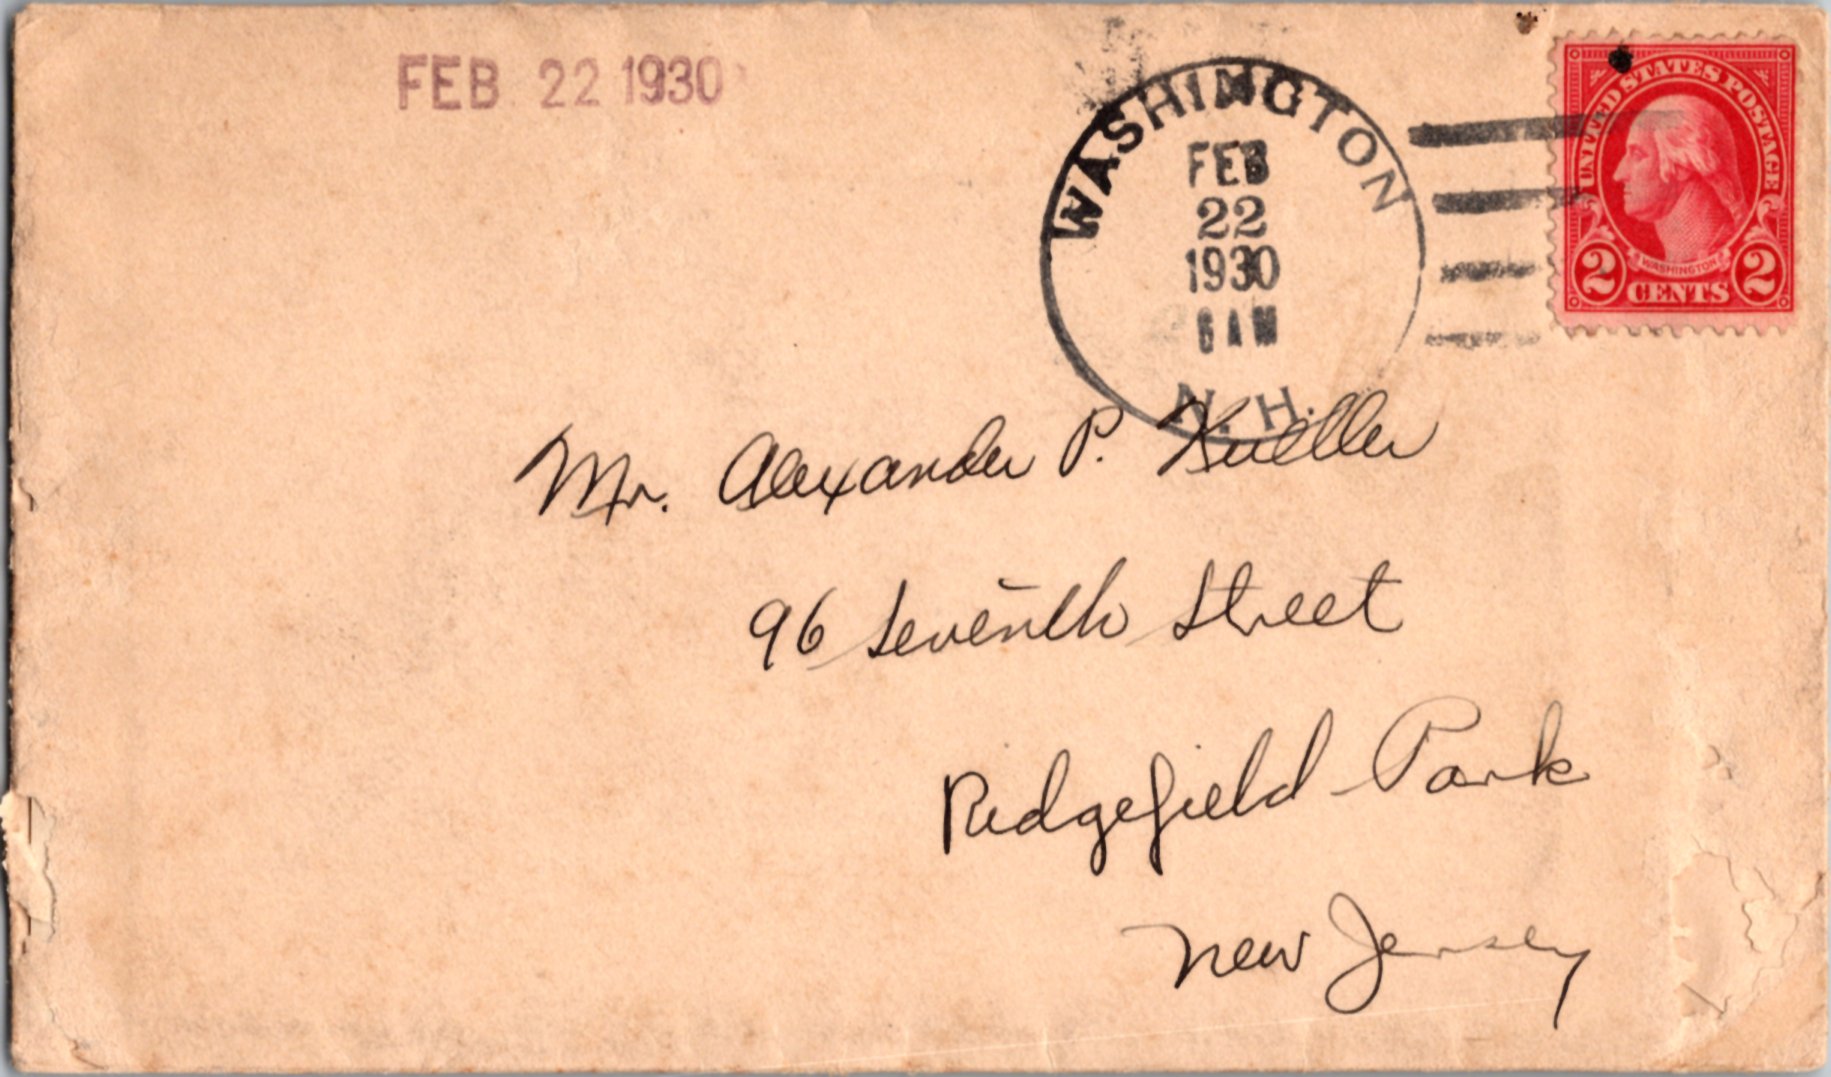 FEB 22 1930
WASHINGTON
FEB
22
1930
6 AM
N.H.
UNITED STATES POSTAGE
WASHINGTON
2 CENTS 2
Mr. Alexander P. Kueller
96 Seventh Street
Ridgefield Park
New Jersey